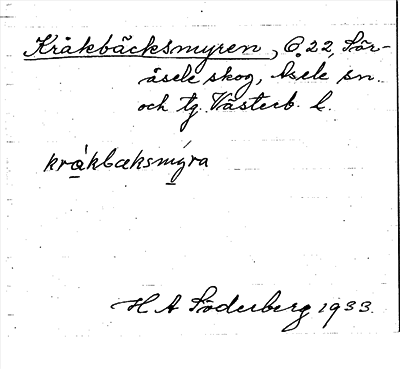 Kråkbäcksmyren, C. 22, Sör-
åsele skog, Åsele sn.
och tg. Västerb. l.
kråkbæksmýra
H A Söderberg 1933.